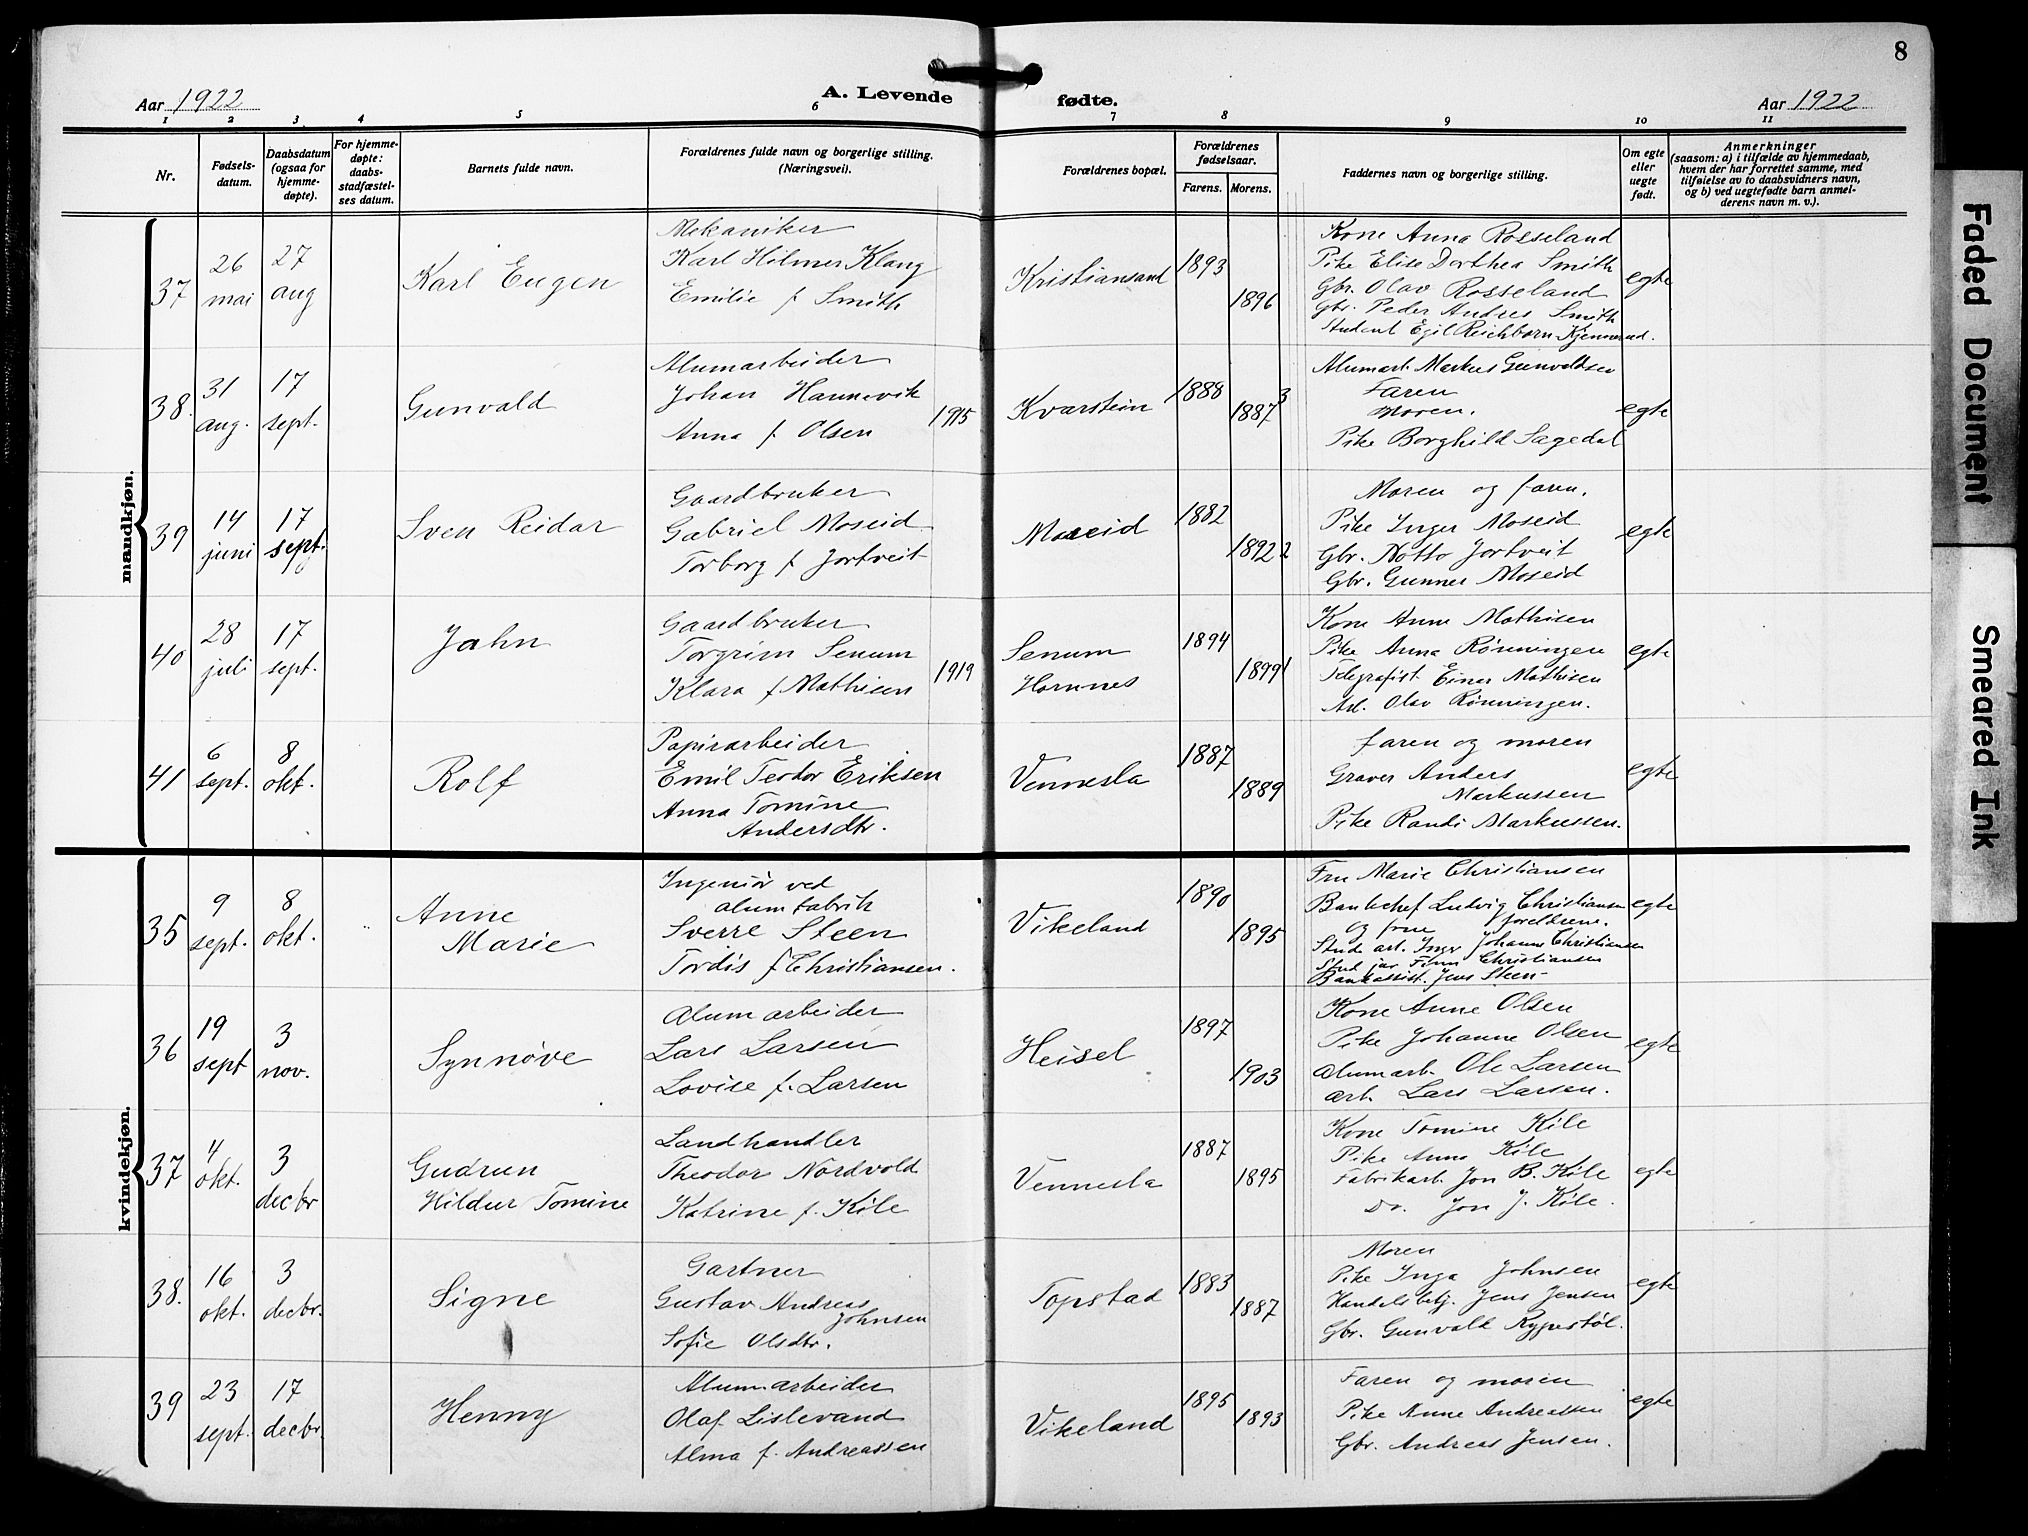 8
Aar 1922
A. Levende fødte.
Aar 1922
1 2 3 4 5 6 7 8 9 10 11
Nr.
Fødsels-
datum.
Daabsdatum
(ogsaa for
hjemme-
døpte).
For hjemme-
døpte:
daabs-
stadfæstel-
ses datum.
Barnets fulde navn.
Forældrenes fulde navn og borgerlige stilling.
(Næringsvei).
Forældrenes bopæl.
Forældrenes
fødselsaar.
Farens. Morens.
Faddernes navn og borgerlige stilling.
Om egte
eller
uegte
født.
Anmerkninger
(saasom: a) i tilfælde av hjemmedaab,
hvem der har forrettet samme, med
tilføielse av to daabsvidners navn,
og b) ved uegtefødte barn anmel-
derens navn m. v.).
mandkjøn.
37
26
mai
27
aug
Karl Eugen
Mekaniker
Karl Hilmer Klang
Emilie f Smith
Kristiansand
1893
1896
Kone Anna Rosseland
Pike Elise Dorthea Smith
Gbr. Olav Rosseland
Gbr. Peder Andres Smith
Student Egil Reichborn-Kjennerud.
egte
38.
31
aug.
17
sept.
Gunvald
Alumarbeider
Johan Hannevik
Anna f. Olsen
1915
Kvarstein
1888
1887
3
Alumarb. Markus Gunvaldsen
Faren
Moren.
Pike Borghild Sagedal
egte
39
14
juni
17
sept.
Sven Reidar
Gaardbruker
Gabriel Moseid
Torborg f Jortveit
Moseid
1882
1892
2
Moren og faren.
Pike Inger Moseid
Gbr. Notto Jortveit
Gbr. Gunner Moseid
egte
40
28
juli
17
sept.
Jahn
Gaardbruker
Torgrim Senum
Klara f Mathisen
1919
Senum
Hornnes
1894
1899
1
Kone Anne Mathisen
Pike Anna Rønningen
Telegrafist Einar Mathisen
Arb. Olav Rønningen.
egte
41
6
sept.
8
okt.
Rolf
Papirarbeider
Emil Teodor Eriksen
Anna Tomine
Andersdtr.
Vennesla
1887
1889
faren og moren
Graver Anders
Markussen
Pike Randi Markussen.
egte
kvindekjøn.
35
9
sept.
8
okt.
Anne
Marie
Ingeniør ved
alumfabrik
Sverre Steen
Tordis f Christiansen.
Vikeland
1890
1895
Fru Marie Christiansen
Bankchef Ludvig Christiansen
og frue foreldrene.
Stud. art. Inger Johanne Christiansen
Stud jur Finn Christiansen
Bankassist. Jens Steen
egte
36
19
sept
3
nov.
Synnøve
Alumarbeider
Lars Larsen
Lovise f. Larsen
Heisel
1897
1903
Kone Anne Olsen
Pike Johanne Olsen
Alumarb. Ole Larsen
arb. Lars Larsen.
egte
37
4
okt.
3
decbr
Gudrun
Hildur Tomine
Landhandler
Theodor Nordvold
Katrine f. Kile
Vennesla
1887
1895
Kone Tomine Kile
Pike Anna Kile
Fabrikarb. Jon B. Kile
Do. Jon J. Kile.
egte
38.
16
okt.
3
decbr.
Signe
Gartner
Gustav Andreas
Johnsen
Sofie Olsdtr.
Topstad
1883
1887
Moren
Pike Inga Johnsen
Handelsbetj. Jens Jensen
Gbr. Gunvald Rypestøl.
egte
39
23
sept.
17
decbr.
Henny
Alumarbeider
Olaf Lislevand
Alma f. Andreassen
Vikeland
1895
1893
Faren og moren
Pike Anne Andreassen
Gbr. Andreas Jensen.
egte
Faded Document
Smeared Ink